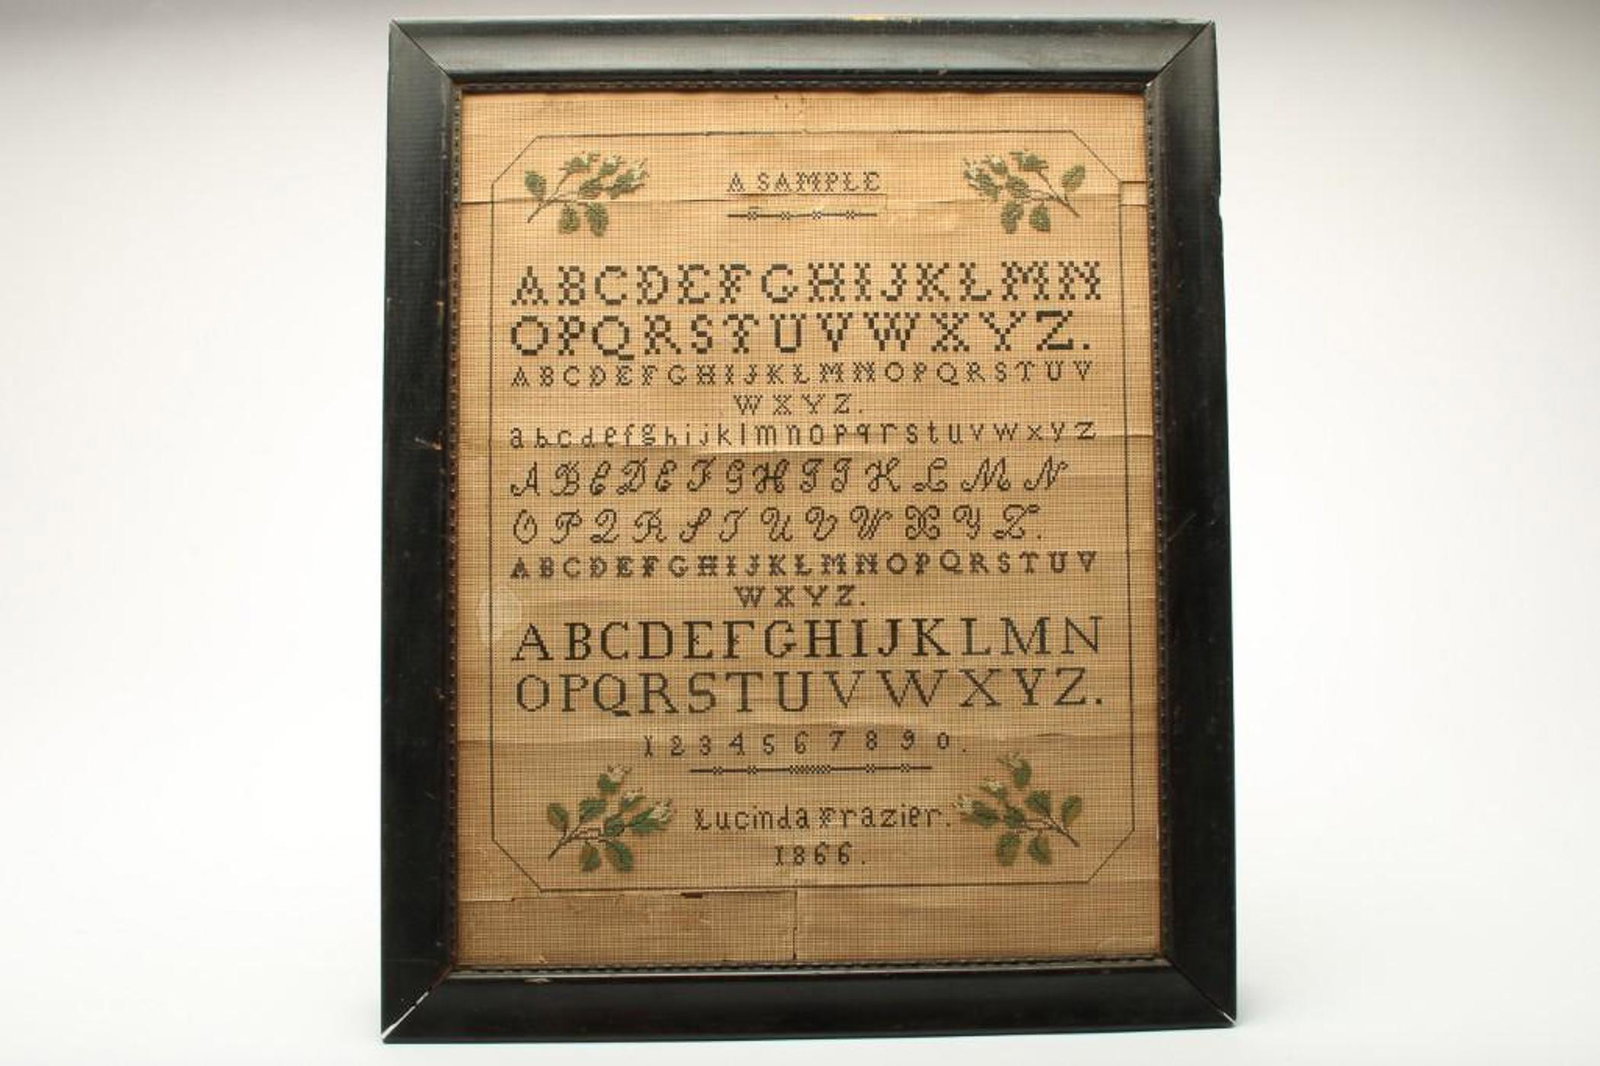 A SAMPLE
ABCDEFGHIJKLMN
OPQRSTUVWXYZ.
ABCDEFGHIJKLMNOPQRSTUV
WXYZ.
abcdefghijklmnopqrstuvwxyz
ABCDEFGHIJKLMN
OPQRSTUVWXYZ.
ABCDEFGHIJKLMNOPQRSTUV
WXYZ.
ABCDEFGHIJKLMN
OPQRSTUVWXYZ.
1 2 3 4 5 6 7 8 9 0.
Lucinda Frazier.
1866.